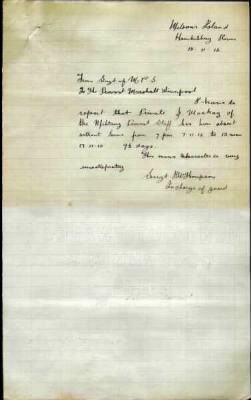 Milsons Island
Hawkesbury River
18.11.16
From Sergt of M.P.S
To The Provost Marshall Liverpool
to
report that Private J. Mackay of
the Military Provost Staff has been absent
without leave from 7 pm 7.11.16 to 12 noon
17.11.16 9½ days.
This mans character is very
unsatisfactory
Sergt Thompson
In charge of guard